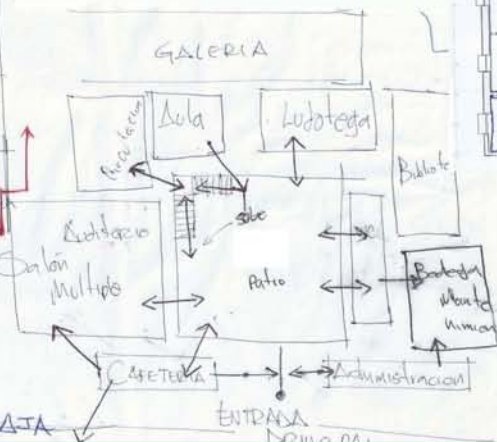 GALERIA
Aula
Ludotega
Bibliote
Auditorio
Salón
Multiple
sube
Patio
Bodega
Mante
nimien
CAFETERIA
Administracion
ENTRADA
AJA